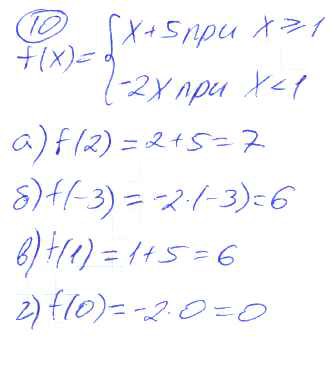 10
f(x) = { x + 5 при x ≥ 1
-2x при x < 1
а) f(2) = 2 + 5 = 7
б) f(-3) = -2 · (-3) = 6
в) f(1) = 1 + 5 = 6
г) f(0) = -2 · 0 = 0